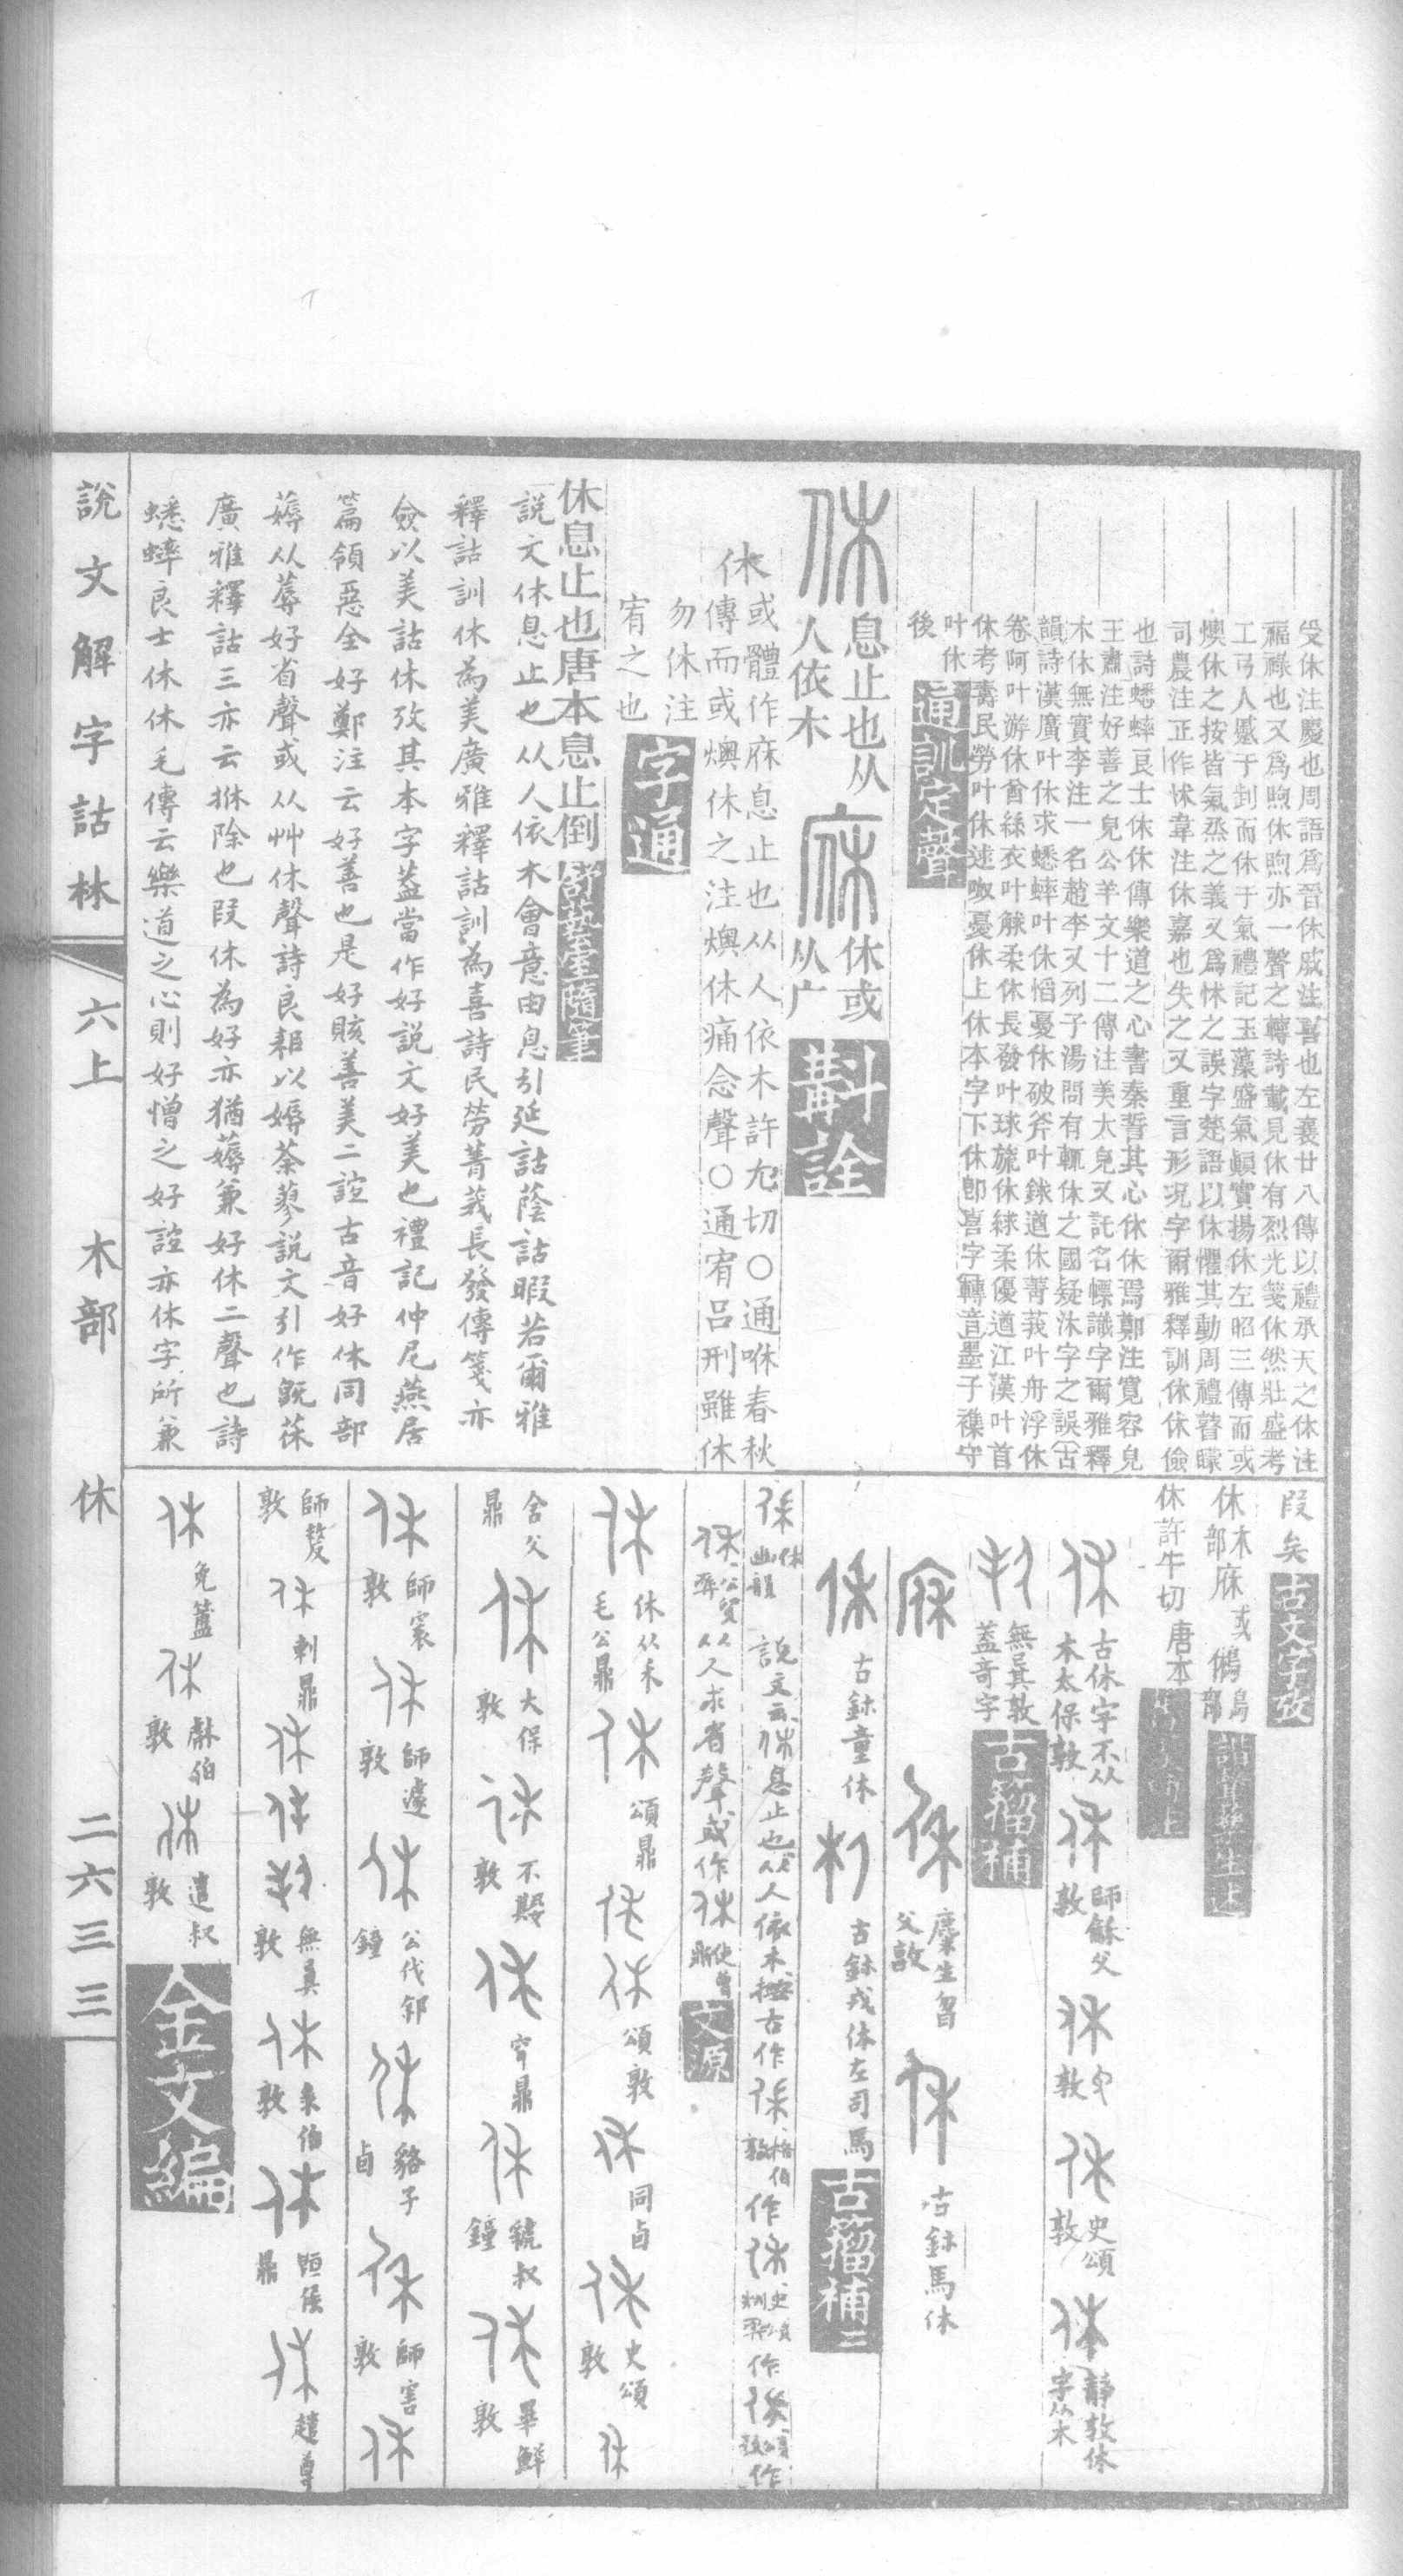 受休注慶也周語爲晉休戚注喜也左襄廿八傳以禮承天之休注
福祿也又爲煦休煦亦一聲之轉詩載見休有烈光箋休然壯盛考
工弓人慼于封而休于氣禮記玉藻盛氣顚實揚休左昭三傳而或
燠休之按皆氣烝之義又爲怵之誤字楚語以休懼其動周禮瞽矇
司農注正作怵韋注休嘉也失之又重言形況字爾雅釋訓休休儉
也詩蟋蟀良士休休傳樂道之心書秦誓其心休休焉鄭注寬容皃
王肅注好善之皃公羊文十二傳注美大皃又託名幖識字爾雅釋
木休無實李注一名趙李又列子湯問有輒休之國疑沐字之誤古
韻詩漢廣叶休求蟋蟀叶休慆憂休破斧叶銶遒休菁莪叶舟浮休
卷阿叶游休酋絲衣叶觩柔休長發叶球旒休絿柔優遒江漢叶首
休考壽民勞叶休逑怓憂休上休本字下休卽喜字轉音墨子襍守
叶休
後
通訓定聲
休
息止也从
人依木
庥
休或
从广
斠詮
休
或體作庥息止也从人依木許尤切○通咻春秋
傳而或燠休之注燠休痛念聲○通宥呂刑雖休
勿休注
宥之也
字通
休息止也唐本息止倒
舒藝室隨筆
說文休息止也从人依木會意由息引延詁蔭詁暇若爾雅
釋詁訓休為美廣雅釋詁訓為喜詩民勞菁莪長發傳箋亦
僉以美詁休攷其本字葢當作好說文好美也禮記仲尼燕居
篇領惡全好鄭注云好善也是好賅善美二誼古音好休同部
薅从蓐好省聲或从艸休聲詩良耜以薅荼蓼說文引作旣茠
廣雅釋詁三亦云茠除也叚休為好亦猶薅兼好休二聲也詩
蟋蟀良士休休毛傳云樂道之心則好憎之好誼亦休字所兼
叚矣
古文字攷
休
木部
庥
或
鵂
鳥部
詁
休許牛切
唐本
休
古休字不从
木太保敦
休
師龢父
敦
休
史
敦
休
史頌
敦
休
靜敦休
字从禾
無㠱敦
葢奇字
古籀補
庥
休
麋生曶
父敦
休
古鉥馬休
休
古鉥童休
休
古鉥戎休左司馬
古籀補二
休
幽韻
說文云休息止也从人依木按古作
格伯敦
作
史頌敦
作
頌敦
作
从人求省聲或作
文源
休
休从禾
毛公鼎
休
頌鼎
休
頌敦
休
同卣
休
史頌
敦
休
舍父
鼎
休
大保
敦
休
不𡢁
敦
休
窂鼎
休
虢叔
鐘
休
畢鮮
敦
休
師寰
敦
休
師遽
敦
休
公伐郐
鐘
休
貉子
卣
休
師害
敦
休
師𠭰
敦
休
剌鼎
休
無㠱
敦
休
彔伯
敦
休
鼎
休
趞尊
休
免簠
休
敦
休
遣叔
敦
金文編
說文解字詁林
六上
木部
休
二六三三